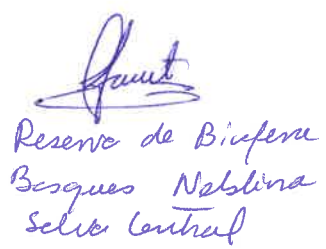 Reserva de Biosfera
Bosques Neblina
Selva Central